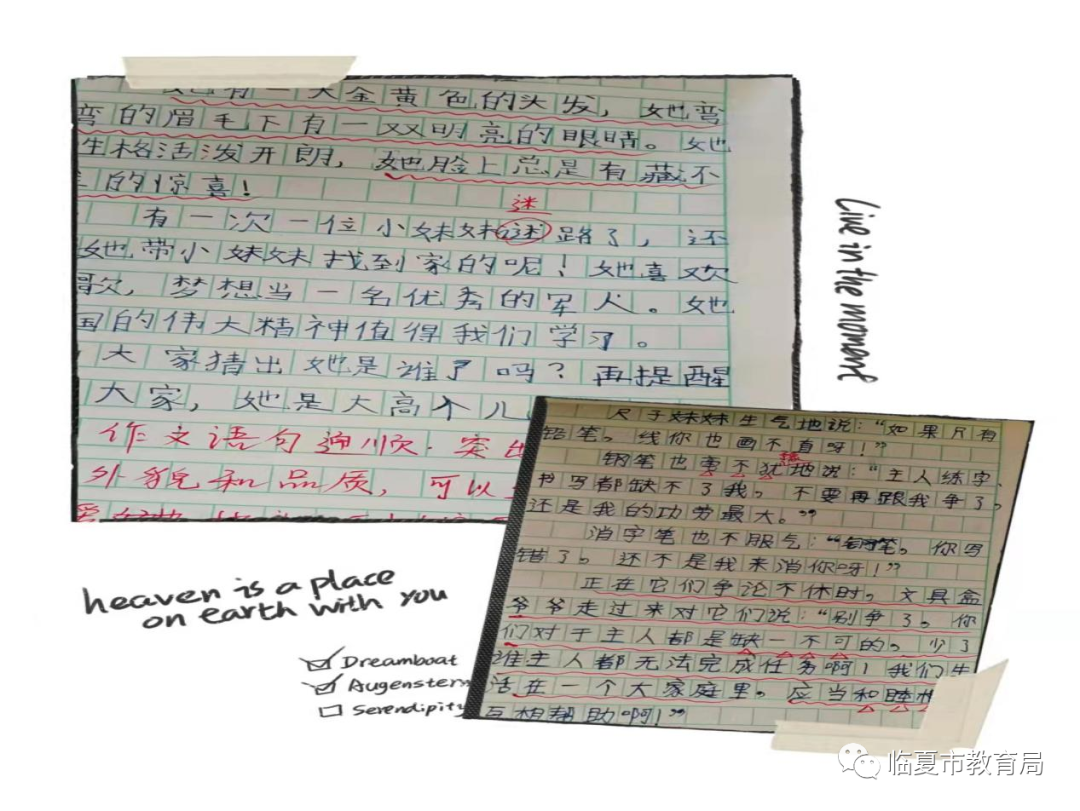 有一头金黄色的头发，她弯
弯的眉毛下有一双明亮的眼睛。她
生格活泼开朗，她脸上总是有藏不
的惊喜！
迷
有一次一位小妹妹迷路了，还
她带小妹妹找到家的呢！她喜欢
歌，梦想当一名优秀的军人。她
国的伟大精神值得我们学习。
大家猜出她是谁了吗？再提醒
大家，她是大高个儿
作文语句通顺．突出
外貌和品质，可以
尺子妹妹生气地说：“如果尺有
铅笔。线你也画不直呀！”
钢笔也毫不犹地说：“主人练字、
书写都缺不了我。不要再跟我争了。
还是我的功劳最大。”
消字笔也不服气：“钢笔。你写
错了。还不是我来消你呀！”
正在它们争论不休时。文具盒
爷爷走过来对它们说：“别争了。你
们对于主人都是缺一不可的。少了
谁主人都无法完成任务啊！我们生
活在一个大家庭里。应当和睦相
互相帮助啊！”
Live in the moment
heaven is a place
on earth with you
Dreamboat
Augenstern
Serendipity
临夏市教育局